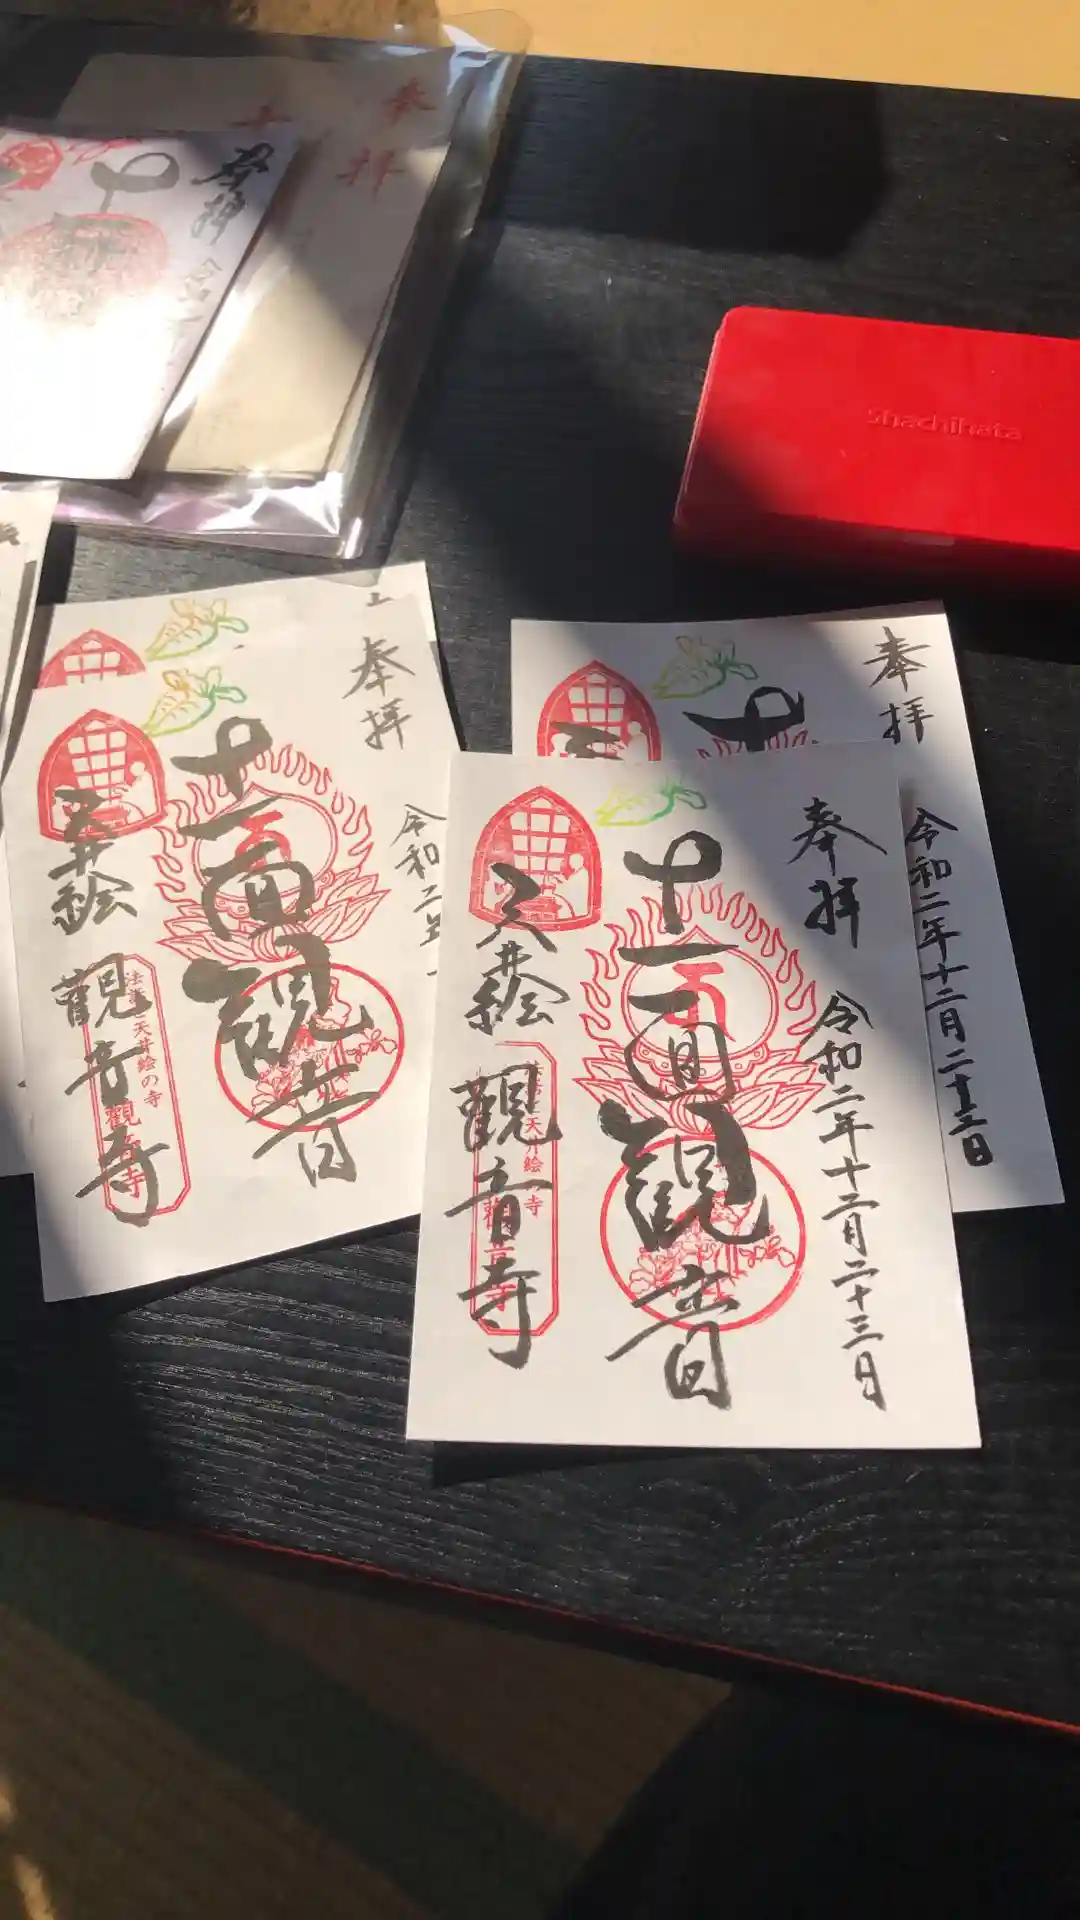 奉拝
奉拝
Shachihata
奉拝
令和二年
十一面観音
天井絵
觀音寺
天井絵の寺
觀音寺
奉拝
令和二年十二月二十三日
十
天
奉拝
令和二年十二月二十三日
十一面観音
天井絵
觀音寺
天井絵
寺
觀音寺